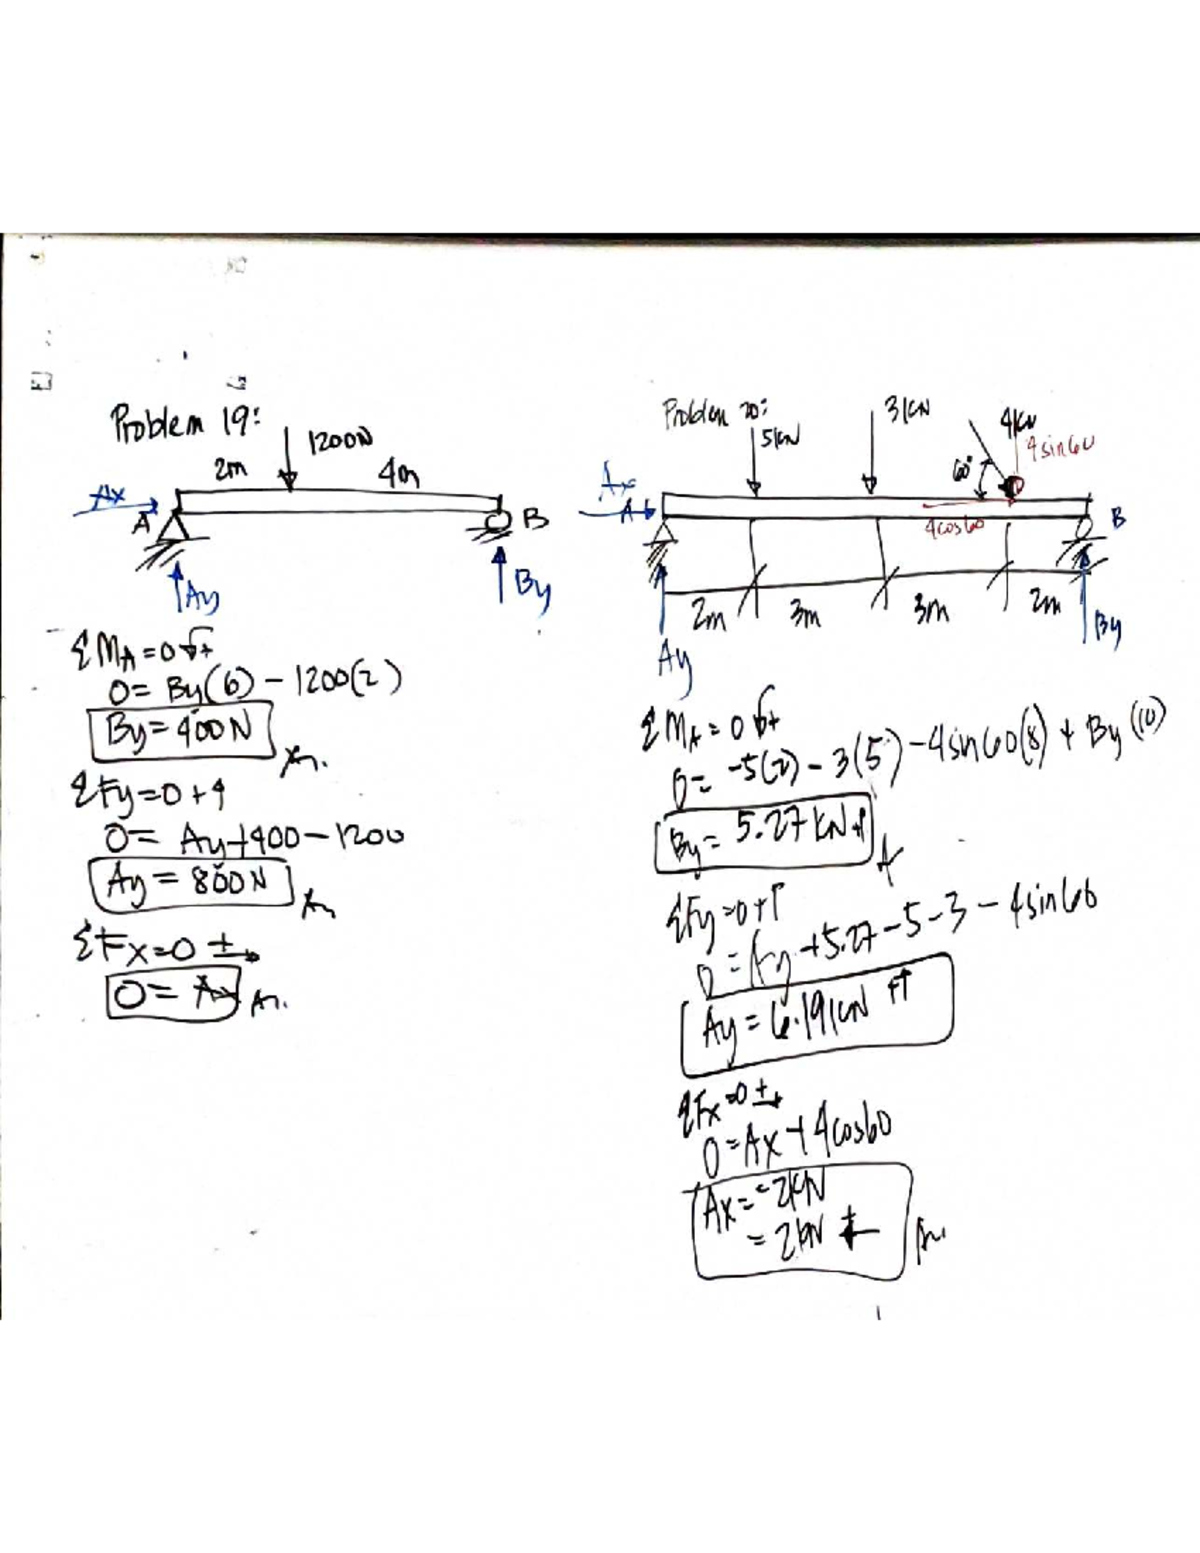 Problem 19:
1200N
2m
4m
Ax
A
B
Ay
By
ΣMA=0 ↶+
0= By(6) - 1200(2)
By=400N
An.
ΣFy=0+↑
0= Ay+400-1200
Ay= 800N
An
ΣFx=0 +→
0= Ax An.
Problem 20:
5kN
3kN
4kN
4sin60
60°
Ax
A
4cos60
B
2m
3m
3m
2m
Ay
By
ΣMA=0 ↶+
0= -5(2) - 3(5) - 4sin60(8) + By(10)
By= 5.27kN
ΣFy=0+↑
0= Ay+5.27-5-3-4sin60
Ay= 6.19kN
ΣFx=0 +→
0=Ax+4cos60
Ax= -2kN
= 2kN ←
An.